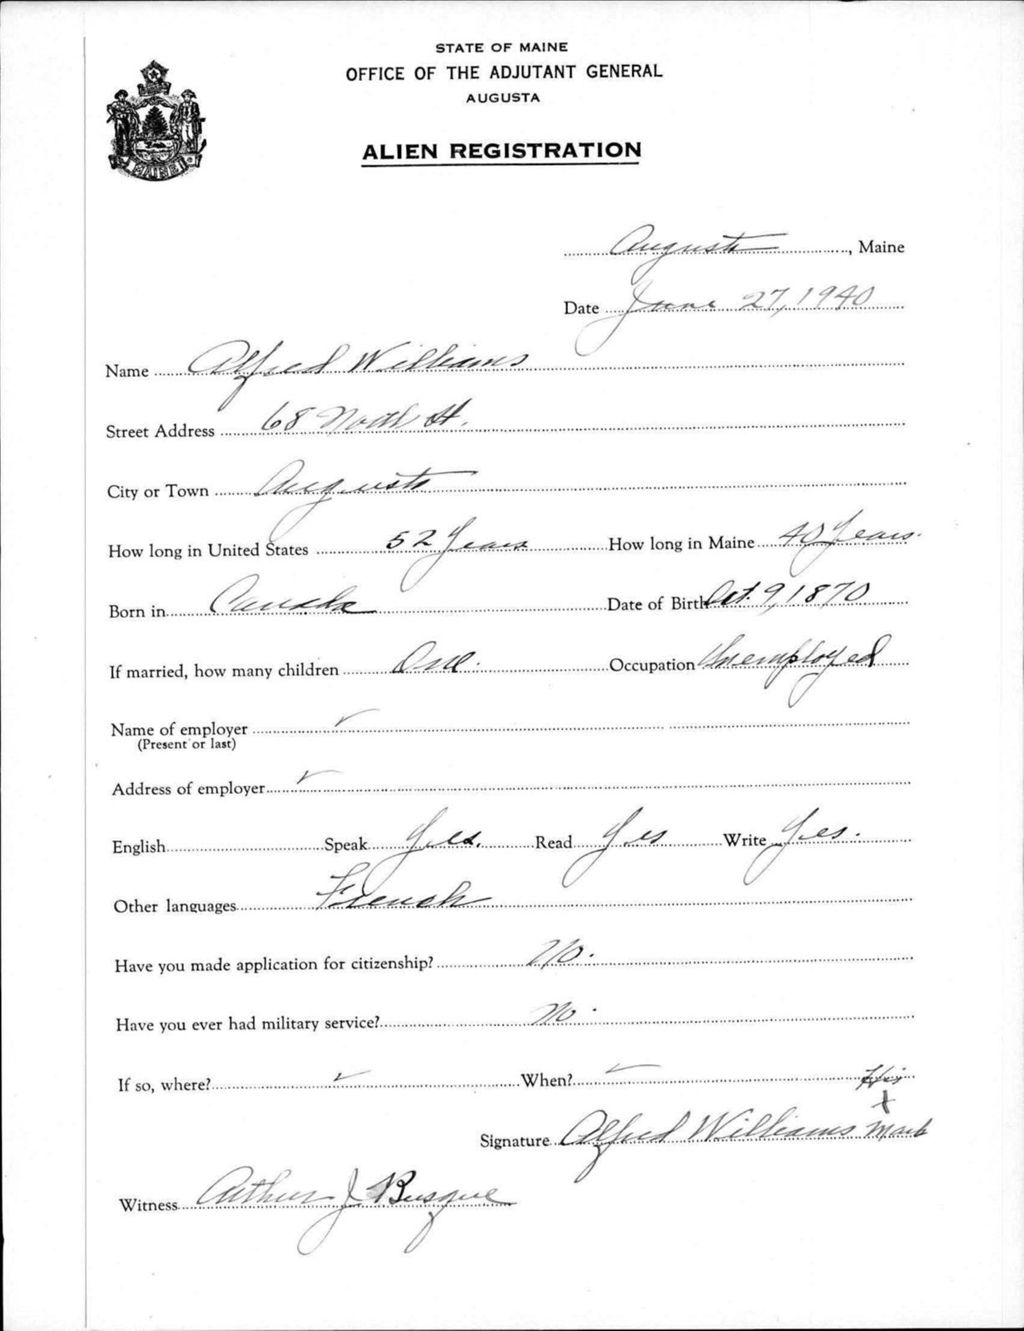 STATE OF MAINE
OFFICE OF THE ADJUTANT GENERAL
AUGUSTA
ALIEN REGISTRATION
Augusta, Maine
Date June 27, 1940
Name Alfred Williams
Street Address 68 North St.
City or Town Augusta
How long in United States 52 Years How long in Maine 40 Years.
Born in Canada Date of Birth Oct. 9, 1870
If married, how many children One. Occupation Unemployed
Name of employer
(Present or last)
Address of employer
English Speak Yes. Read Yes Write Yes.
Other languages French
Have you made application for citizenship? No.
Have you ever had military service? No.
If so, where? When? His
x
Signature Alfred Williams mark
Witness Arthur J. Busque
MAINE